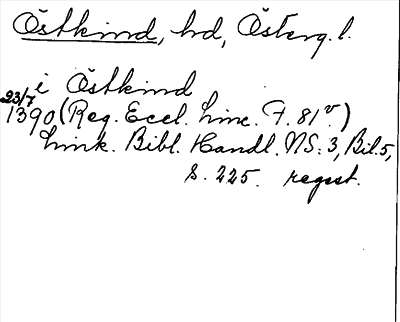 Östkind, hd, Österg. l.
i Östkind
23/7 1390 (Reg. Eccl. Linc. F. 81v.)
Link. Bibl. Handl. NS: 3, Bil. 5,
s. 225. regest.